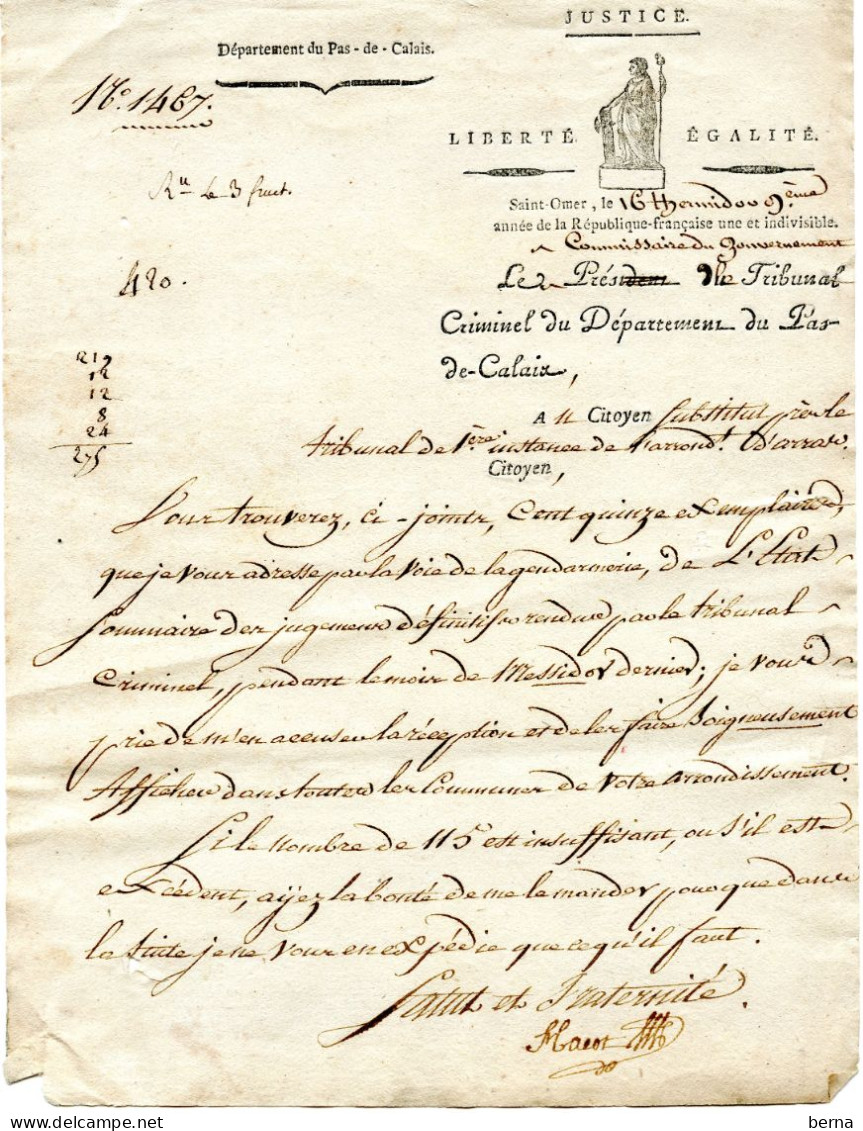 JUSTICE.
Département du Pas-de-Calais.
N.° 1467.
LIBERTÉ. ÉGALITÉ.
Ru le 3 fruct.
Saint-Omer, le 16 thermidor 9.ème
année de la République française une et indivisible.
Commissaire du Gouvernement
420.
Le Président du Tribunal
Criminel du Département du Pas-
de-Calais,
219
12
12
8
24
275
A u Citoyen Substitut près le
tribunal de 1.ère instance de l'arrond.t d'arras.
Citoyen,
Vous trouverez, ci-joints, Cent quinze exemplaires,
que je vous adresse par la voie de la gendarmerie, de L'État
sommaire des jugemens définitifs rendus par le tribunal
Criminel, pendant le mois de Messidor dernier; je vous
prie de m'en accuser la réception et de les faire Soigneusement
Afficher dans toutes les Communes de votre arrondissement.
Si le nombre de 115 est insuffisant, ou s'il est
excédent, ayez la bonté de me le mander pour que dans
la suite je ne vous en expédie que ce qu'il faut.
Salut et Fraternité.
berna